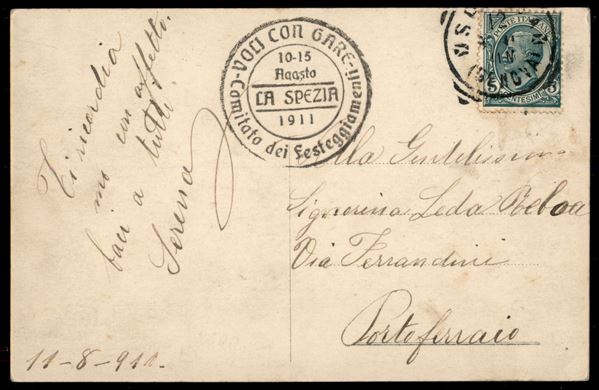 VOLI CON GARE
10-15
Agosto
LA SPEZIA
1911
Comitato dei Festeggiamenti
POSTE ITALIANE
5 CENTESIMI 5
Ti ricordia
mo con affetto.
baci a tutti
Serena
Alla Gentilissima
Signorina Leda Rebua
Via Ferrandini
Portoferraio
11-8-911.